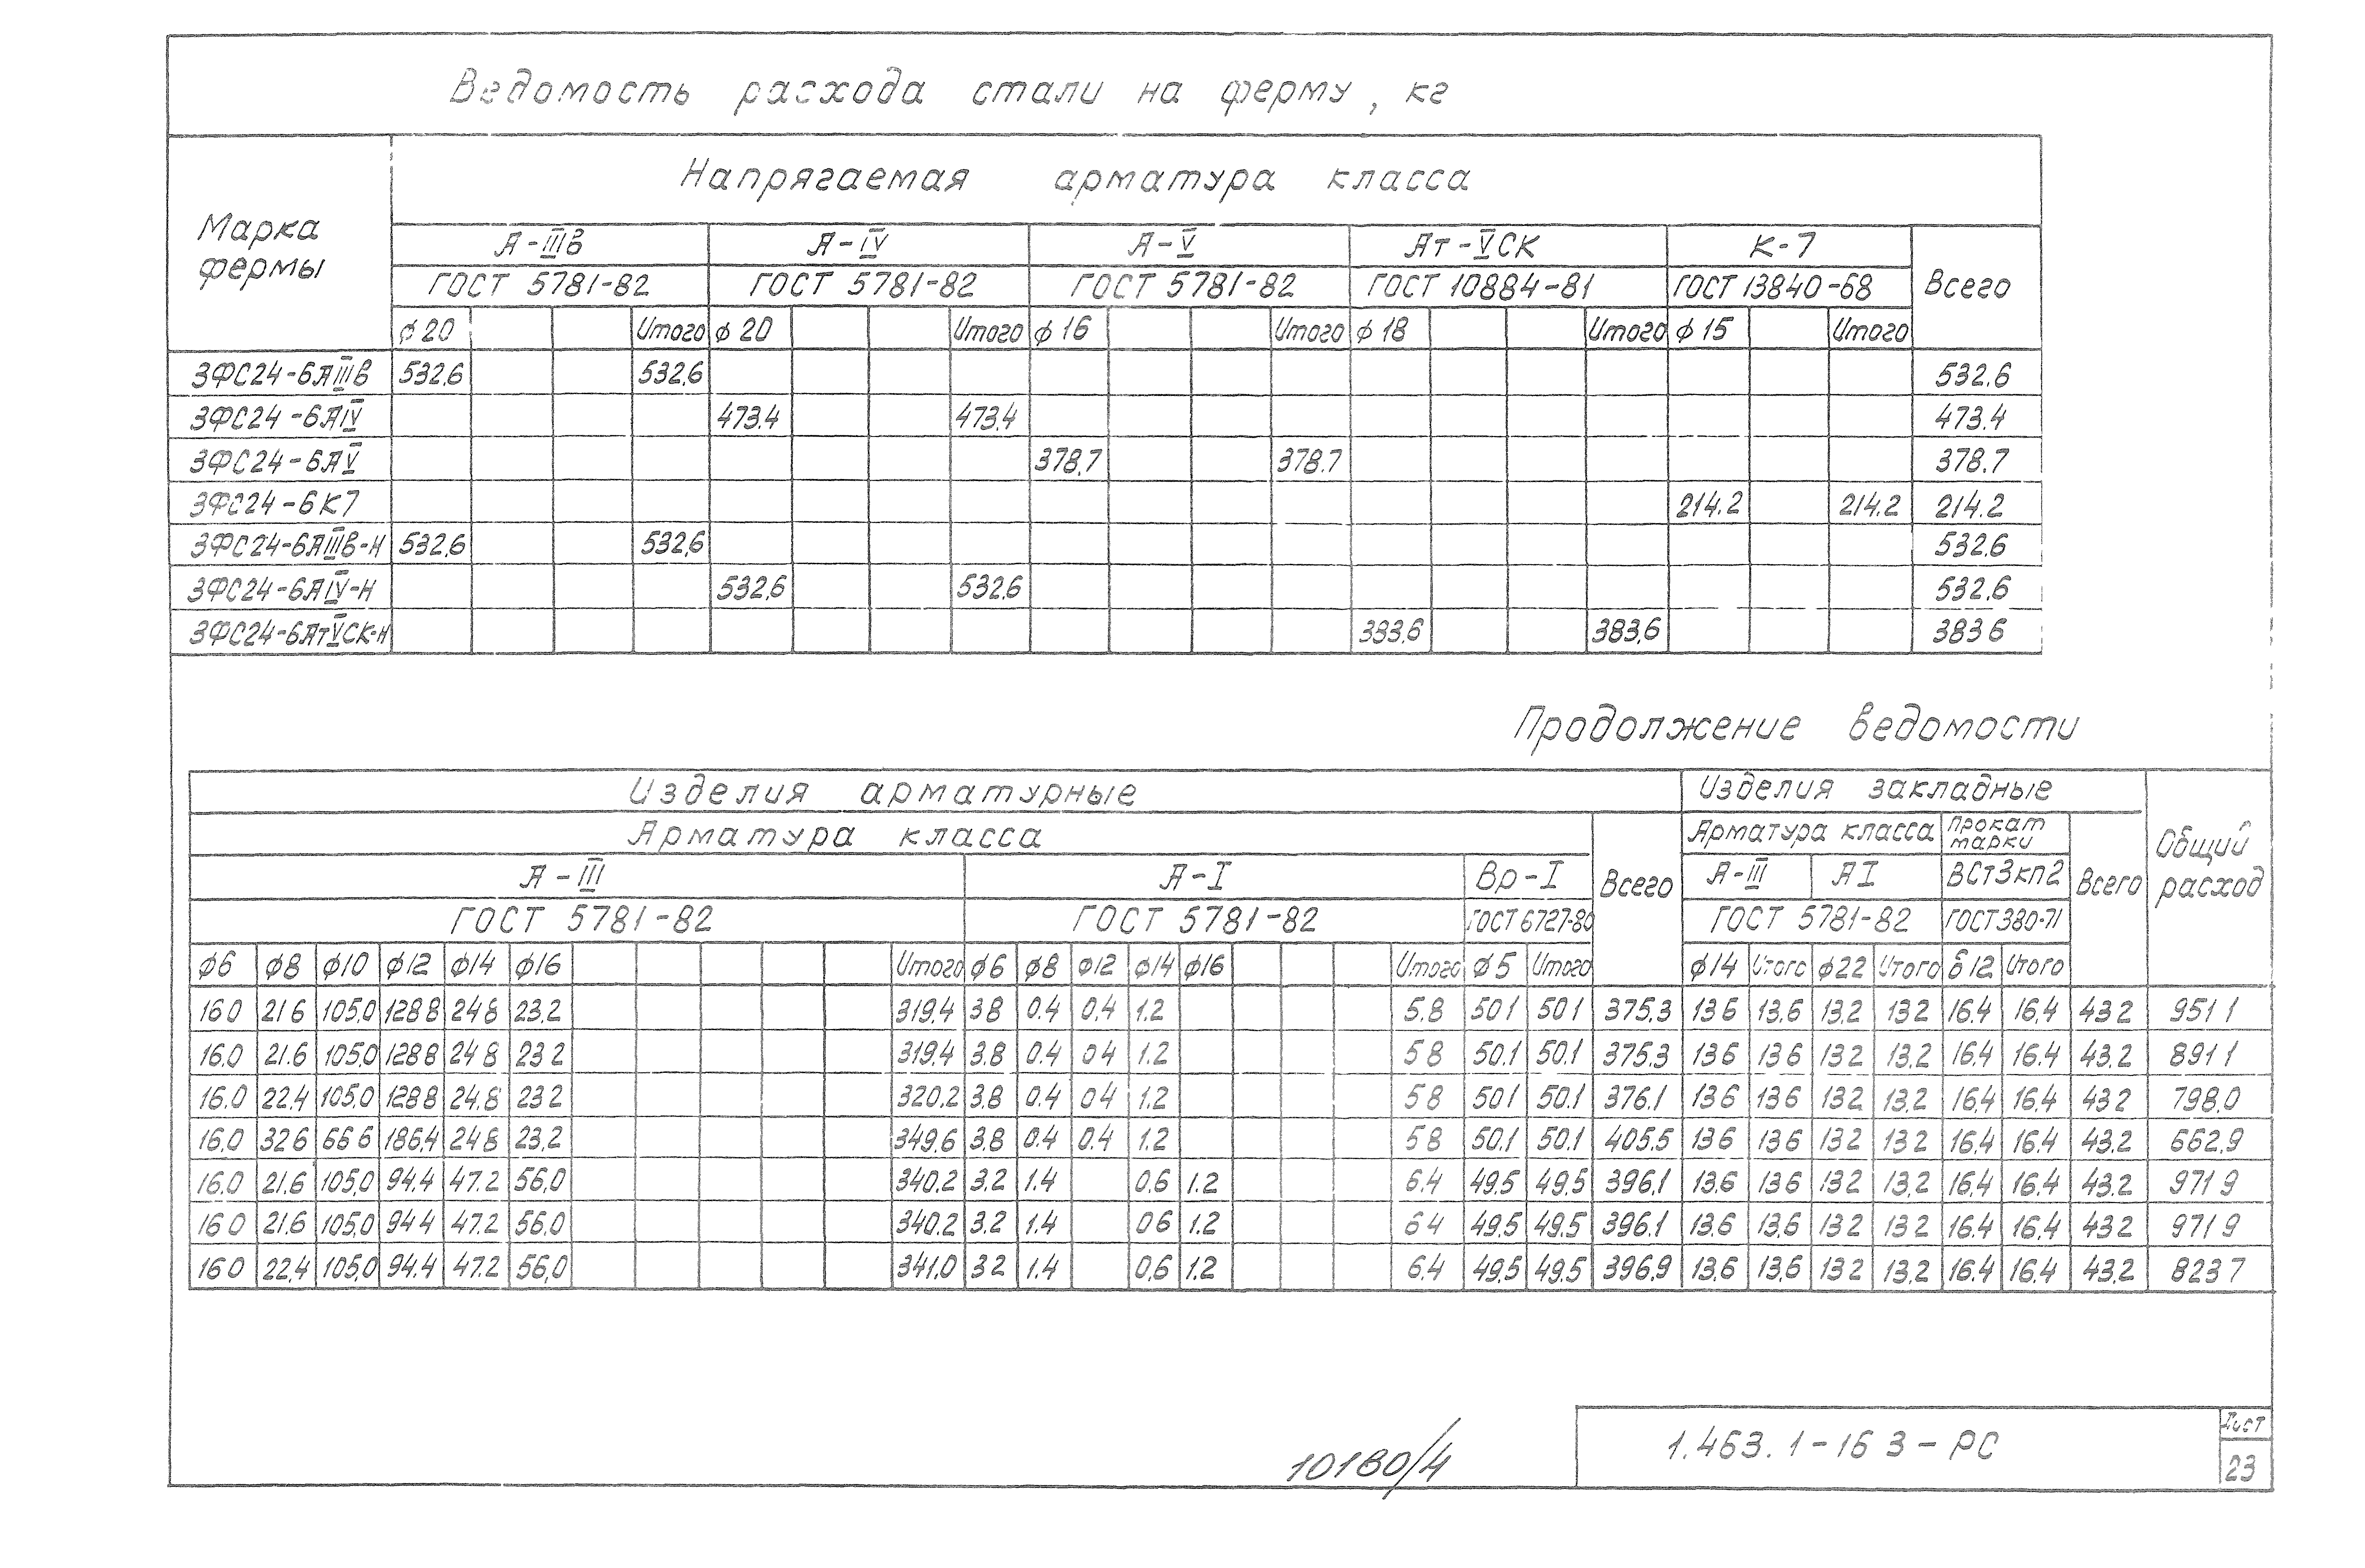 Ведомость расхода стали на ферму, кг
Марка фермы
Напрягаемая арматура класса
А-IIIв А-IV А-V Ат-VСК К-7 Всего
ГОСТ 5781-82 ГОСТ 5781-82 ГОСТ 5781-82 ГОСТ 10884-81 ГОСТ 13840-68
ф20 Итого ф20 Итого ф16 Итого ф18 Итого ф15 Итого
3ФС24-6АIIIв 532,6 532,6 532,6
3ФС24-6АIV 473.4 473.4 473.4
3ФС24-6АV 378,7 378.7 378.7
3ФС24-6К7 214.2 214.2 214.2
3ФС24-6АIIIв-Н 532,6 532,6 532,6
3ФС24-6АIV-Н 532,6 532,6 532,6
3ФС24-6АтVСК-Н 383,6 383,6 383 6
Продолжение ведомости
Изделия арматурные Изделия закладные Общий расход
Арматура класса Всего Арматура класса Прокат марки Всего
А-III А-I Вр-I А-III АI ВСт3кп2
ГОСТ 5781-82 ГОСТ 5781-82 ГОСТ 6727-80 ГОСТ 5781-82 ГОСТ 380-71
ф6 ф8 ф10 ф12 ф14 ф16 Итого ф6 ф8 ф12 ф14 ф16 Итого ф5 Итого ф14 Итого ф22 Итого δ12 Итого
16 0 21 6 105,0 128 8 24 8 23,2 319,4 3 8 0.4 0,4 1.2 5.8 50 1 50 1 375,3 13 6 13,6 13,2 13 2 16.4 16,4 43 2 951 1
16.0 21.6 105,0 128 8 24 8 23 2 319.4 3.8 0.4 0 4 1.2 5 8 50.1 50.1 375.3 13 6 13 6 13 2 13,2 16.4 16.4 43,2 891 1
16.0 22.4 105,0 128 8 24.8 23 2 320,2 3,8 0.4 0 4 1.2 5 8 50 1 50.1 376.1 13 6 13 6 13 2 13,2 16,4 16,4 43 2 798,0
16,0 32 6 66 6 186,4 24 8 23,2 349,6 3,8 0.4 0.4 1.2 5 8 50.1 50.1 405.5 13 6 13 6 13 2 13 2 16.4 16.4 43.2 662,9
16.0 21.6 105,0 94.4 47.2 56,0 340.2 3,2 1.4 0,6 1.2 6.4 49,5 49,5 396,1 13,6 13 6 13 2 13,2 16,4 16.4 43,2 971 9
16 0 21.6 105,0 94 4 47.2 56.0 340.2 3.2 1.4 0 6 1.2 6 4 49,5 49,5 396.1 13.6 13,6 13 2 13 2 16.4 16.4 43 2 971 9
16 0 22,4 105,0 94.4 47.2 56,0 341.0 3 2 1.4 0,6 1.2 6.4 49,5 49,5 396,9 13,6 13,6 13 2 13,2 16.4 16.4 43,2 823 7
10180/4
1.463.1-16 3-РС
Лист
23